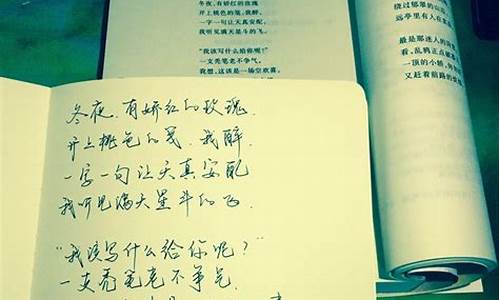 冬夜,有娇红的玫瑰
开上桃色的笺,我醉,
一字一句让天真安配,
我听见满天星斗的飞。
“我该写什么给你呢?”
一支秃笔老不争气,
我想,这该是一场空欢喜。
绕过郁翠的山
远亭里有人在
最是那迷人的
看,乱鸦正点
一顶的小轿,
又赶着前路的
冬夜,有娇红的玫瑰,
开上桃色的笺,我醉,
一字一句让天真安配
我听见满天星斗的飞,
“我该写什么给你呢?”
一支秃笔老不争气,